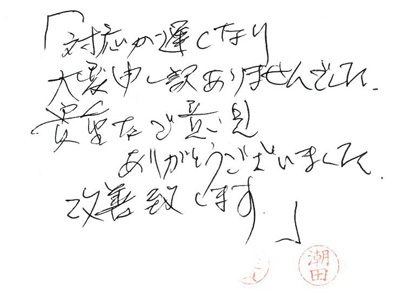 「対応が遅くなり
大変申し訳ありませんでした.
貴重なご意見
ありがとうございました.
改善致します.」
潮田